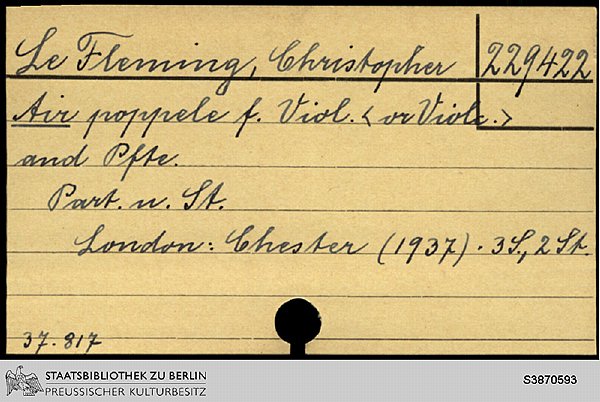 Le Fleming, Christopher 229422
Air poppele f. Viol. <or Viole.>
and Pfte.
Part. u. St.
London: Chester (1937). 3 S., 2 St.
37.817
STAATSBIBLIOTHEK ZU BERLIN
PREUSSISCHER KULTURBESITZ
S3870593